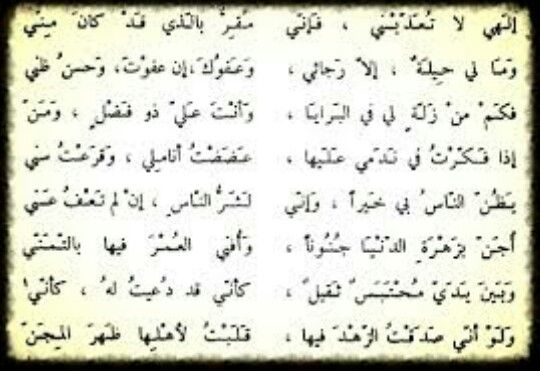 إلهي لا تُعذّبْني ، فإنّي مُقِرٌّ بالّذي قدْ كانَ مِنّي
وَمَا لي حِيلَةٌ ، إلاّ رَجَائي ، وَعَفوُكَ،إن عفوْتَ، وَحسنُ ظني
فكَمْ منْ زَلّةٍ لي في البَرايَا ، وَأنْتَ عَليّ ذو فَضْلٍ ، وَمَنّ
إذا فَكّرْتُ في نَدَمي عَلَيها ، عَضَضْتُ أنامِلي ، وَقرَعْتُ سني
يَظُنّ النّاسُ بي خَيراً ، وَإنّي لَشَرُّ النّاسِ ، إنْ لم تَعْفُ عَنّي
أُجَنّ بزَهْرَةِ الدّنْيَا جُنُوناً ، وَأُفني العُمْرَ فيها بالتّمَنّي
وَبَينَ يَدَيّ مُحْتَبَسٌ ثَقيلٌ ، كأنّي قد دُعيتُ لهُ ، كأنّي
وَلَوْ أنّي صَدَقْتُ الزّهْدَ فيها ، قَلَبْتُ لأهْلِها ظَهرَ المِجَنّ